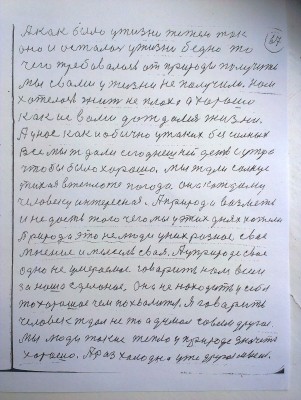 67
А как было у жизни тяжело так
оно и осталось у жизни бедно то
чего требовалось от природы получить
мы сами у жизни не получили. Нам
хотелось жить не плохо а хорошо
как и вами дождались жизни.
А у нас как и обычно у таких бессильных
все мы ждали сегодняшней день с утра
чтобы было хорошо. Мы ждали солнце
тихая в теплоте погода, она каждому
человеку интересная. А природа взяла
и не дасть того чего мы у этих днях хотели
Природа это не люди у них разное свое
мнение и мысель своя. А у природе свое
одно не умераемое говорить нам всем
за нашо сделоное. Она не находить у себя
то хорошое чем похвалить. Я говорить
человек ждал не то а думал совсем другое.
Мы люди такие тепло у природе значить
хорошо. А раз холодно уже другое совсем.